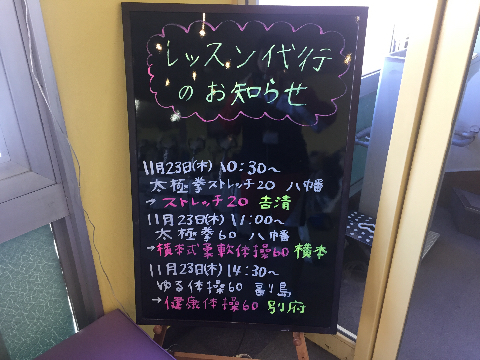 レッスン代行
のお知らせ
11月23日(木) 10:30~
太極拳ストレッチ20 八幡
→ストレッチ20 吉清
11月23日(木) 11:00~
太極拳60 八幡
→積本式柔軟体操60 横本
11月23日(木) 14:30~
ゆる体操60 副島
→健康体操60 別府